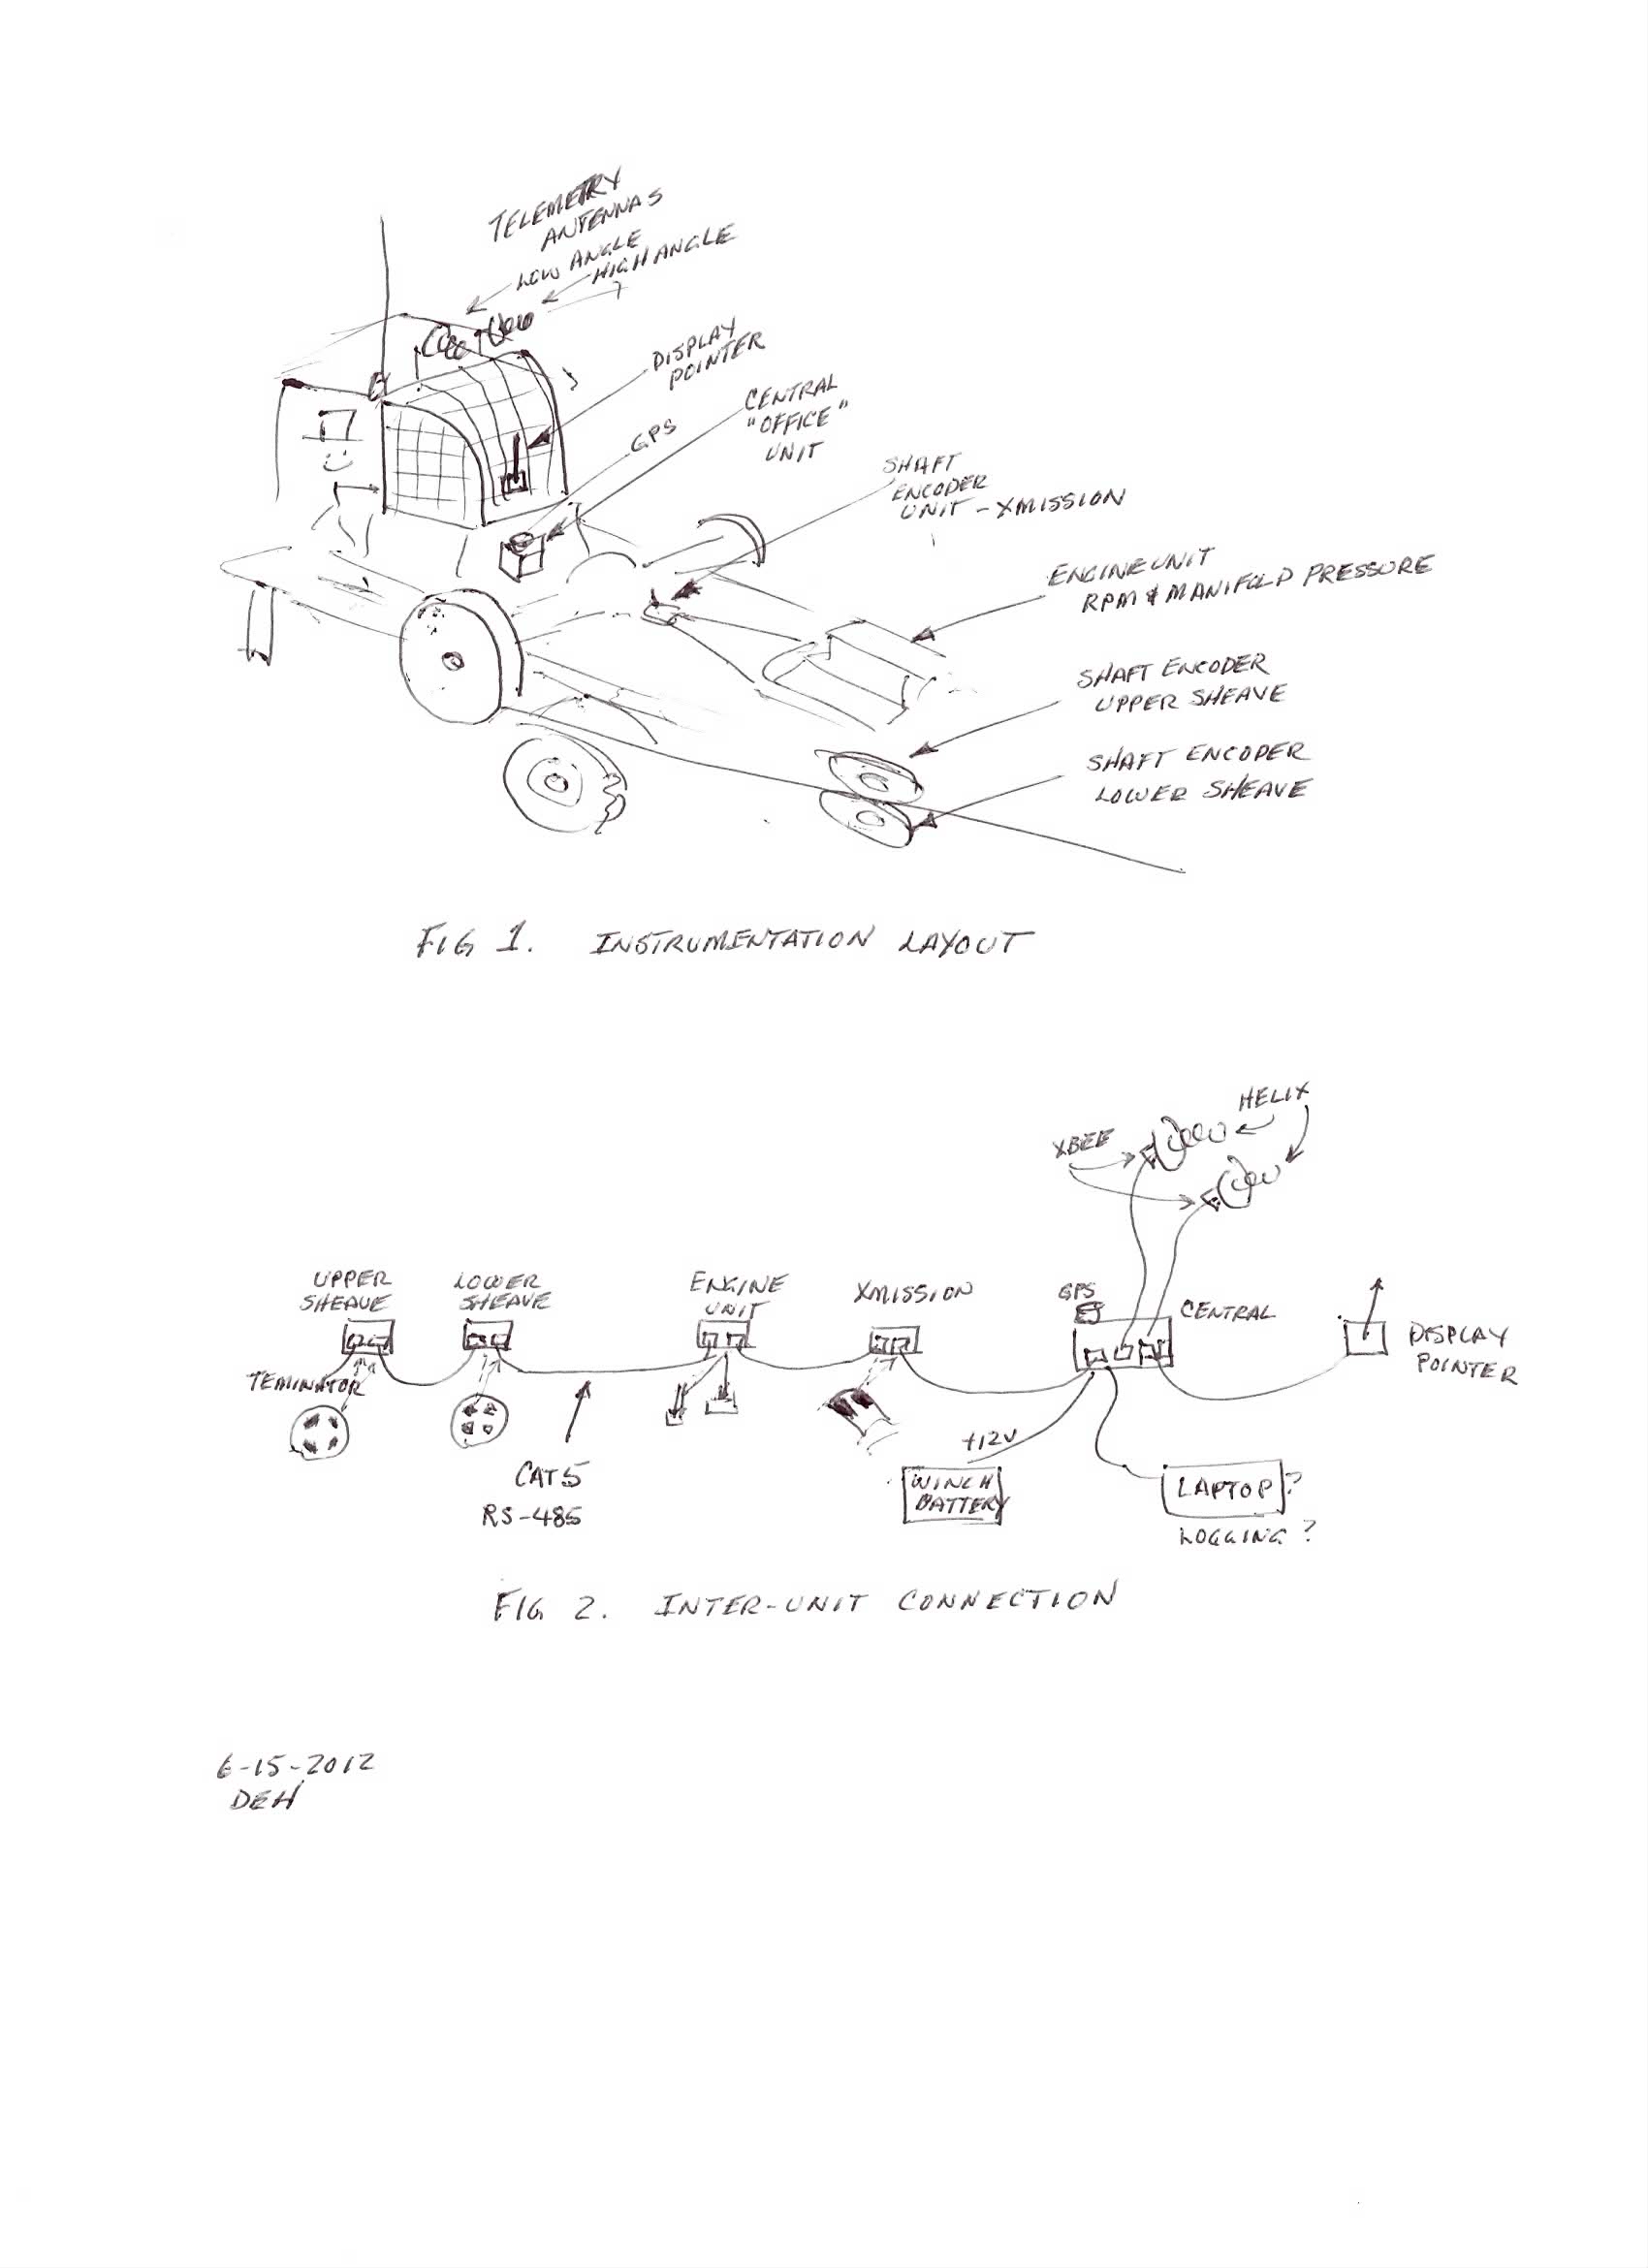 TELEMETRY
ANTENNAS
LOW ANGLE
HIGH ANGLE
DISPLAY
POINTER
CENTRAL
"OFFICE"
UNIT
GPS
SHAFT
ENCODER
UNIT - XMISSION
ENGINE UNIT
RPM & MANIFOLD PRESSURE
SHAFT ENCODER
UPPER SHEAVE
SHAFT ENCODER
LOWER SHEAVE
FIG 1. INSTRUMENTATION LAYOUT
HELIX
XBEE
UPPER
SHEAVE
LOWER
SHEAVE
ENGINE
UNIT
XMISSION
GPS
CENTRAL
DISPLAY
POINTER
TEMINATOR
CAT5
RS-485
+12V
WINCH
BATTERY
LAPTOP?
LOGGING?
FIG 2. INTER-UNIT CONNECTION
6-15-2012
DEH